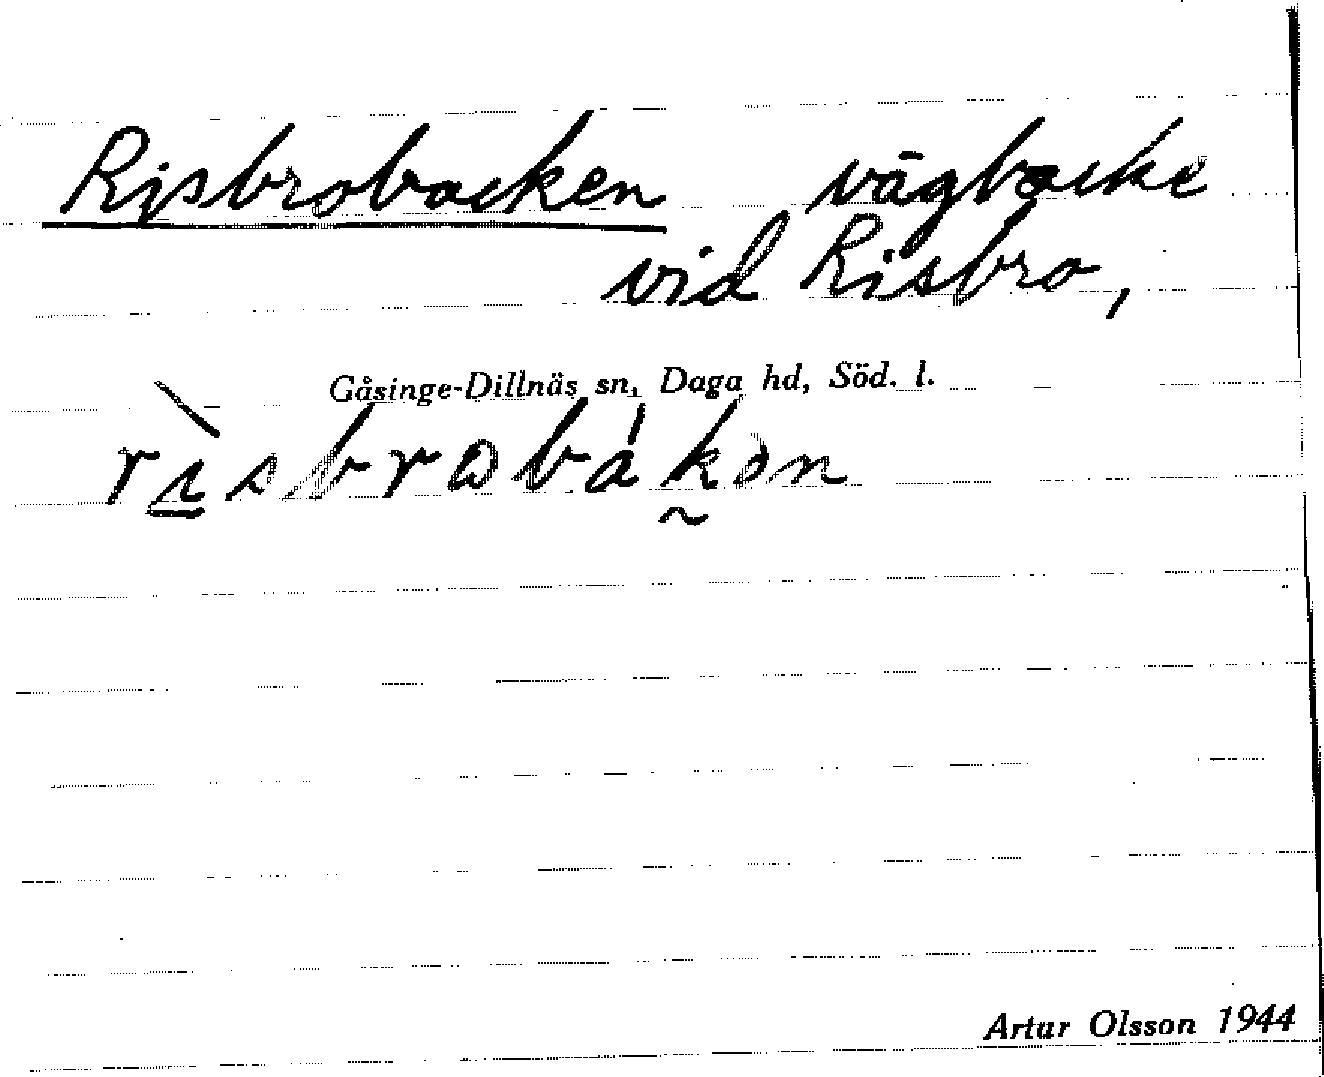 Risbrobacken vägbacke
vid Risbro,
Gåsinge-Dillnäs sn, Daga hd, Söd. l.
rı̀sbrωbákən
Artur Olsson 1944